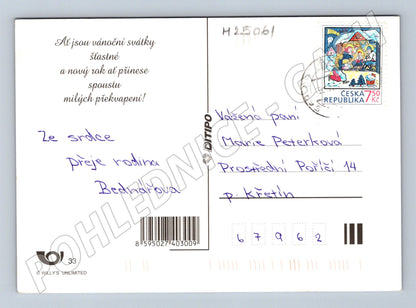 Ať jsou vánoční svátky
šťastné
a nový rok ať přinese
spoustu
milých překvapení!
Ze srdce
přeje rodina
Bednářova
33
© RILLY'S UNLIMITED
8 595027 403009
DITIPO
M25061
ČESKÁ
REPUBLIKA 7,50 Kč
Vážená paní
Marie Peterková
Prostřední Poříčí 14
p. Křetín
6 7 9 6 2
POHLEDNICE - CASH